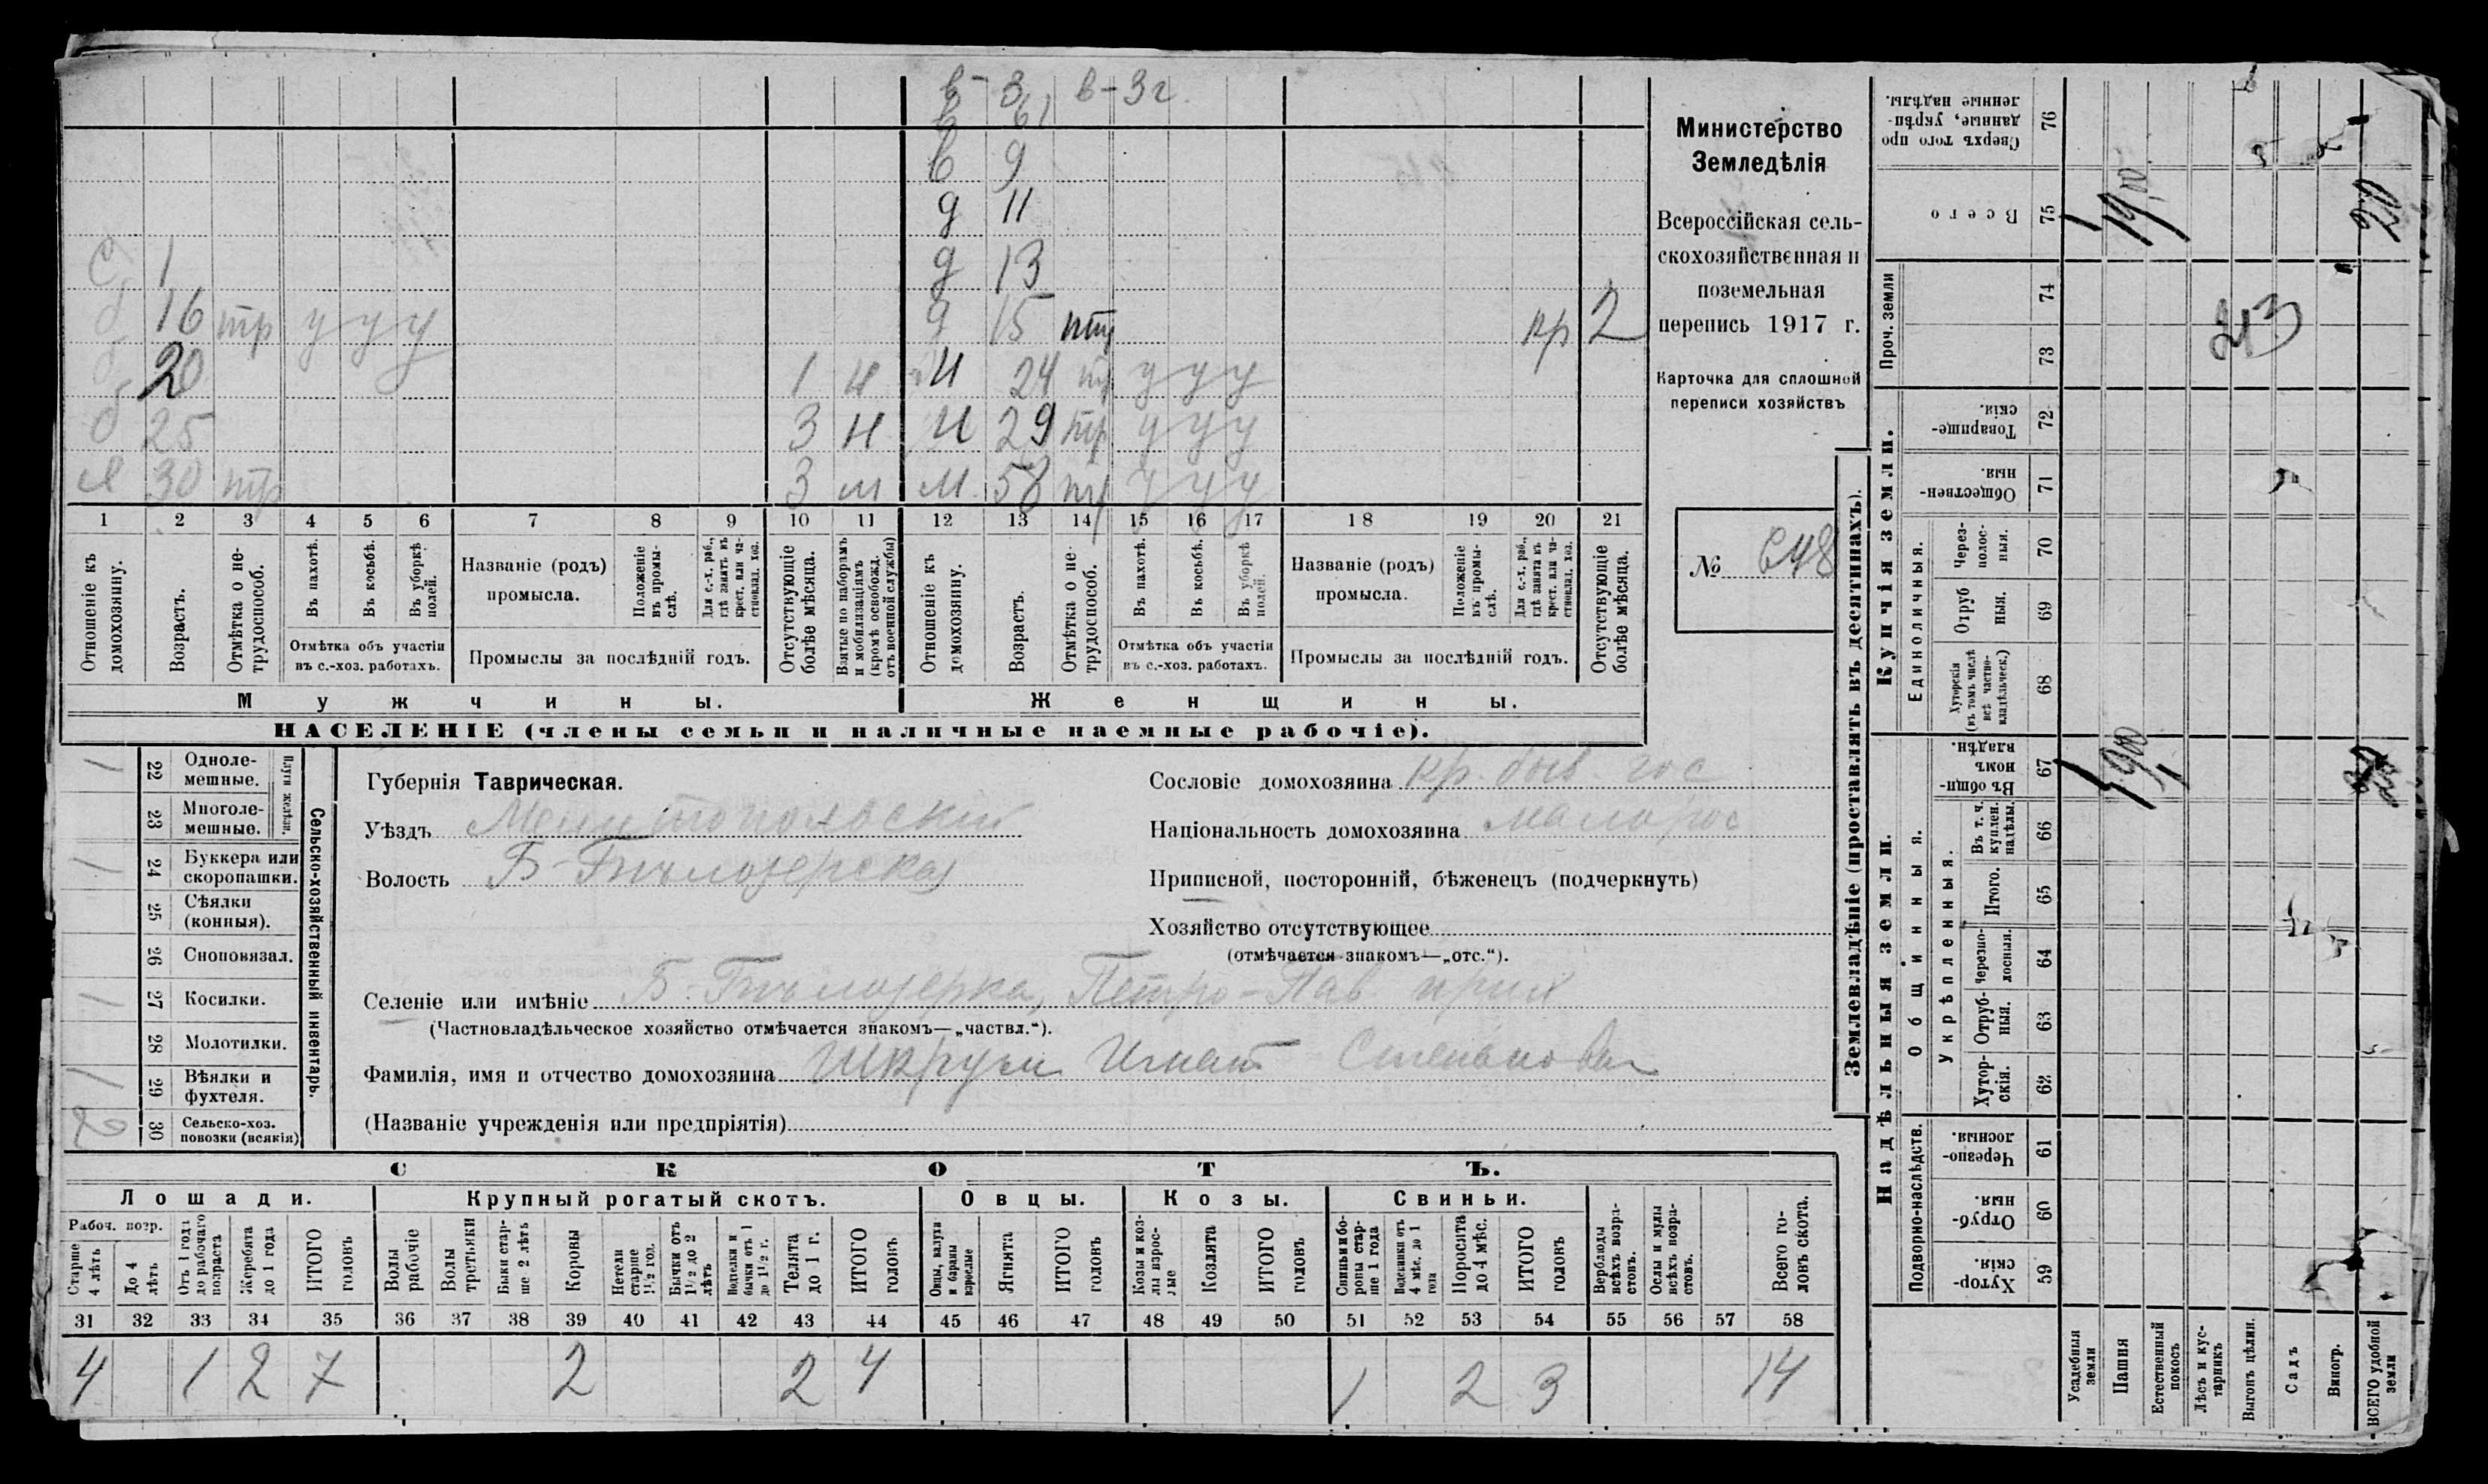 в- 3 в- 3 г
в 6 1
в 9
д 11
С 1 д 13
б 16 тр у у у д 15 кр 2
б 20 1 н 24 у у у
б 25 3 н 29 тр у у у
я 30 тр 3 м м 58 у у у
1 2 3 4 5 6 7 8 9 10 11 12 13 14 15 16 17 18 19 20 21
Отношеніе къ домохозяину.
Возрастъ.
Отмѣтка о не-трудоспособ.
Въ пахотѣ.
Въ косьбѣ.
Въ уборкѣ полей.
Отмѣтка объ участіи
въ с.-хоз. работахъ.
Названіе (родъ)
промысла.
Положеніе въ промы-слѣ.
Для с.-х. раб., гдѣ занятъ въ крест. или ча-стновлад. хоз.
Промыслы за послѣдній годъ.
Отсутствующіе болѣе мѣсяца.
Взятые по наборамъ и мобилизаціямъ (кромѣ освобожд. отъ военной службы)
Отношеніе къ домохозяину.
Возрастъ.
Отмѣтка о не трудоспособ.
Въ пахотѣ.
Въ косьбѣ.
Въ уборкѣ полей.
Отмѣтка объ участіи
въ с.-хоз. работахъ.
Названіе (родъ)
промысла.
Положеніе въ промы-слѣ.
Для с.-х. раб., гдѣ занята въ крест. или ча-стновлад. хоз.
Промыслы за послѣдній годъ.
Отсутствующіе болѣе мѣсяца.
Мужчины. Женщины.
НАСЕЛЕНІЕ (члены семьи и наличные наемные рабочіе).
Министерство
Земледѣлія
Всероссійская сель-
скохозяйственная и
поземельная
перепись 1917 г.
Карточка для сплошной
переписи хозяйствъ
№ 648
Сельско-хозяйственный инвентарь.
Плуги желѣзн.
/ 22 Одноле-мешные.
23 Многоле-мешные.
/ 24 Буккера или скоропашки.
25 Сѣялки (конныя).
26 Сноповязал.
/ 27 Косилки.
28 Молотилки.
/ 29 Вѣялки и фухтеля.
2 30 Сельско-хоз. повозки (всякія)
Губернія Таврическая.
Уѣздъ Мелитопольскій
Волость Б-Бѣлозерская
Сословіе домохозяина кр. быв. гос
Національность домохозяина малорос
Приписной, посторонній, бѣженецъ (подчеркнуть)
Хозяйство отсутствующее
(отмѣчается знакомъ—„отс.“).
Селеніе или имѣніе Б.-Бѣлозерка, Петро-Пав прих
(Частновладѣльческое хозяйство отмѣчается знакомъ—„частвл.“).
Фамилія, имя и отчество домохозяина Игнат
(Названіе учрежденія или предпріятія)
СКОТЪ.
Лошади. Крупный рогатый скотъ. Овцы. Козы. Свиньи.
Рабоч. возр.
Старше 4 лѣтъ
До 4 лѣтъ
Отъ 1 года до рабочаго возраста
Жеребята до 1 года
ИТОГО головъ
Волы рабочіе
Волы третьяки
Быки стар-ше 2 лѣтъ
Коровы
Нетели старше 1½ год.
Бычки отъ 1½ до 2 лѣтъ
Подтелки и бычки отъ 1 до 1½ г.
Телята до 1 г.
ИТОГО головъ
Овцы, валухи и бараны взрослые
Ягнята
ИТОГО головъ
Козы и коз-лы взрос-лые
Козлята
ИТОГО головъ
Свиньи и бо-ровы стар-ше 1 года
Подсвинки отъ 4 мѣс. до 1 года
Поросята до 4 мѣс.
ИТОГО головъ
Верблюды всѣхъ возра-стовъ.
Ослы и мулы всѣхъ возра-стовъ.
Всего го-ловъ скота.
31 32 33 34 35 36 37 38 39 40 41 42 43 44 45 46 47 48 49 50 51 52 53 54 55 56 57 58
4 1 2 7 2 2 4 1 2 3 14
Землевладѣніе (проставлять въ десятинахъ).
Надѣльныя земли.
Купчія земли.
Проч. земли
Подворно-наслѣдств.
Общинныя.
Укрѣпленныя.
Единоличныя.
Сверхъ того про данные, укрѣп-ленные надѣлы. 76
Всего 75
74
73
Товарище-скія. 72
Обществен-ныя. 71
Через-полос-ныя. 70
Отруб ныя. 69
Хуторскія (въ томъ числѣ всѣ частно-владѣльческ.) 68
Въ общи-номъ владѣн. 67
Въ т. ч. куплен. надѣлы. 66
Итого. 65
Черезпо-лосныя. 64
Отруб-ныя. 63
Хутор-скія. 62
Черезпо-лосныя. 61
Отруб-ныя. 60
Хутор-скія. 59
Усадебныя земли
Пашня
Естественный покосъ
Лѣсъ и кус-тарникъ
Выгонъ цѣлин.
Садъ
Виногр.
ВСЕГО удобной земли